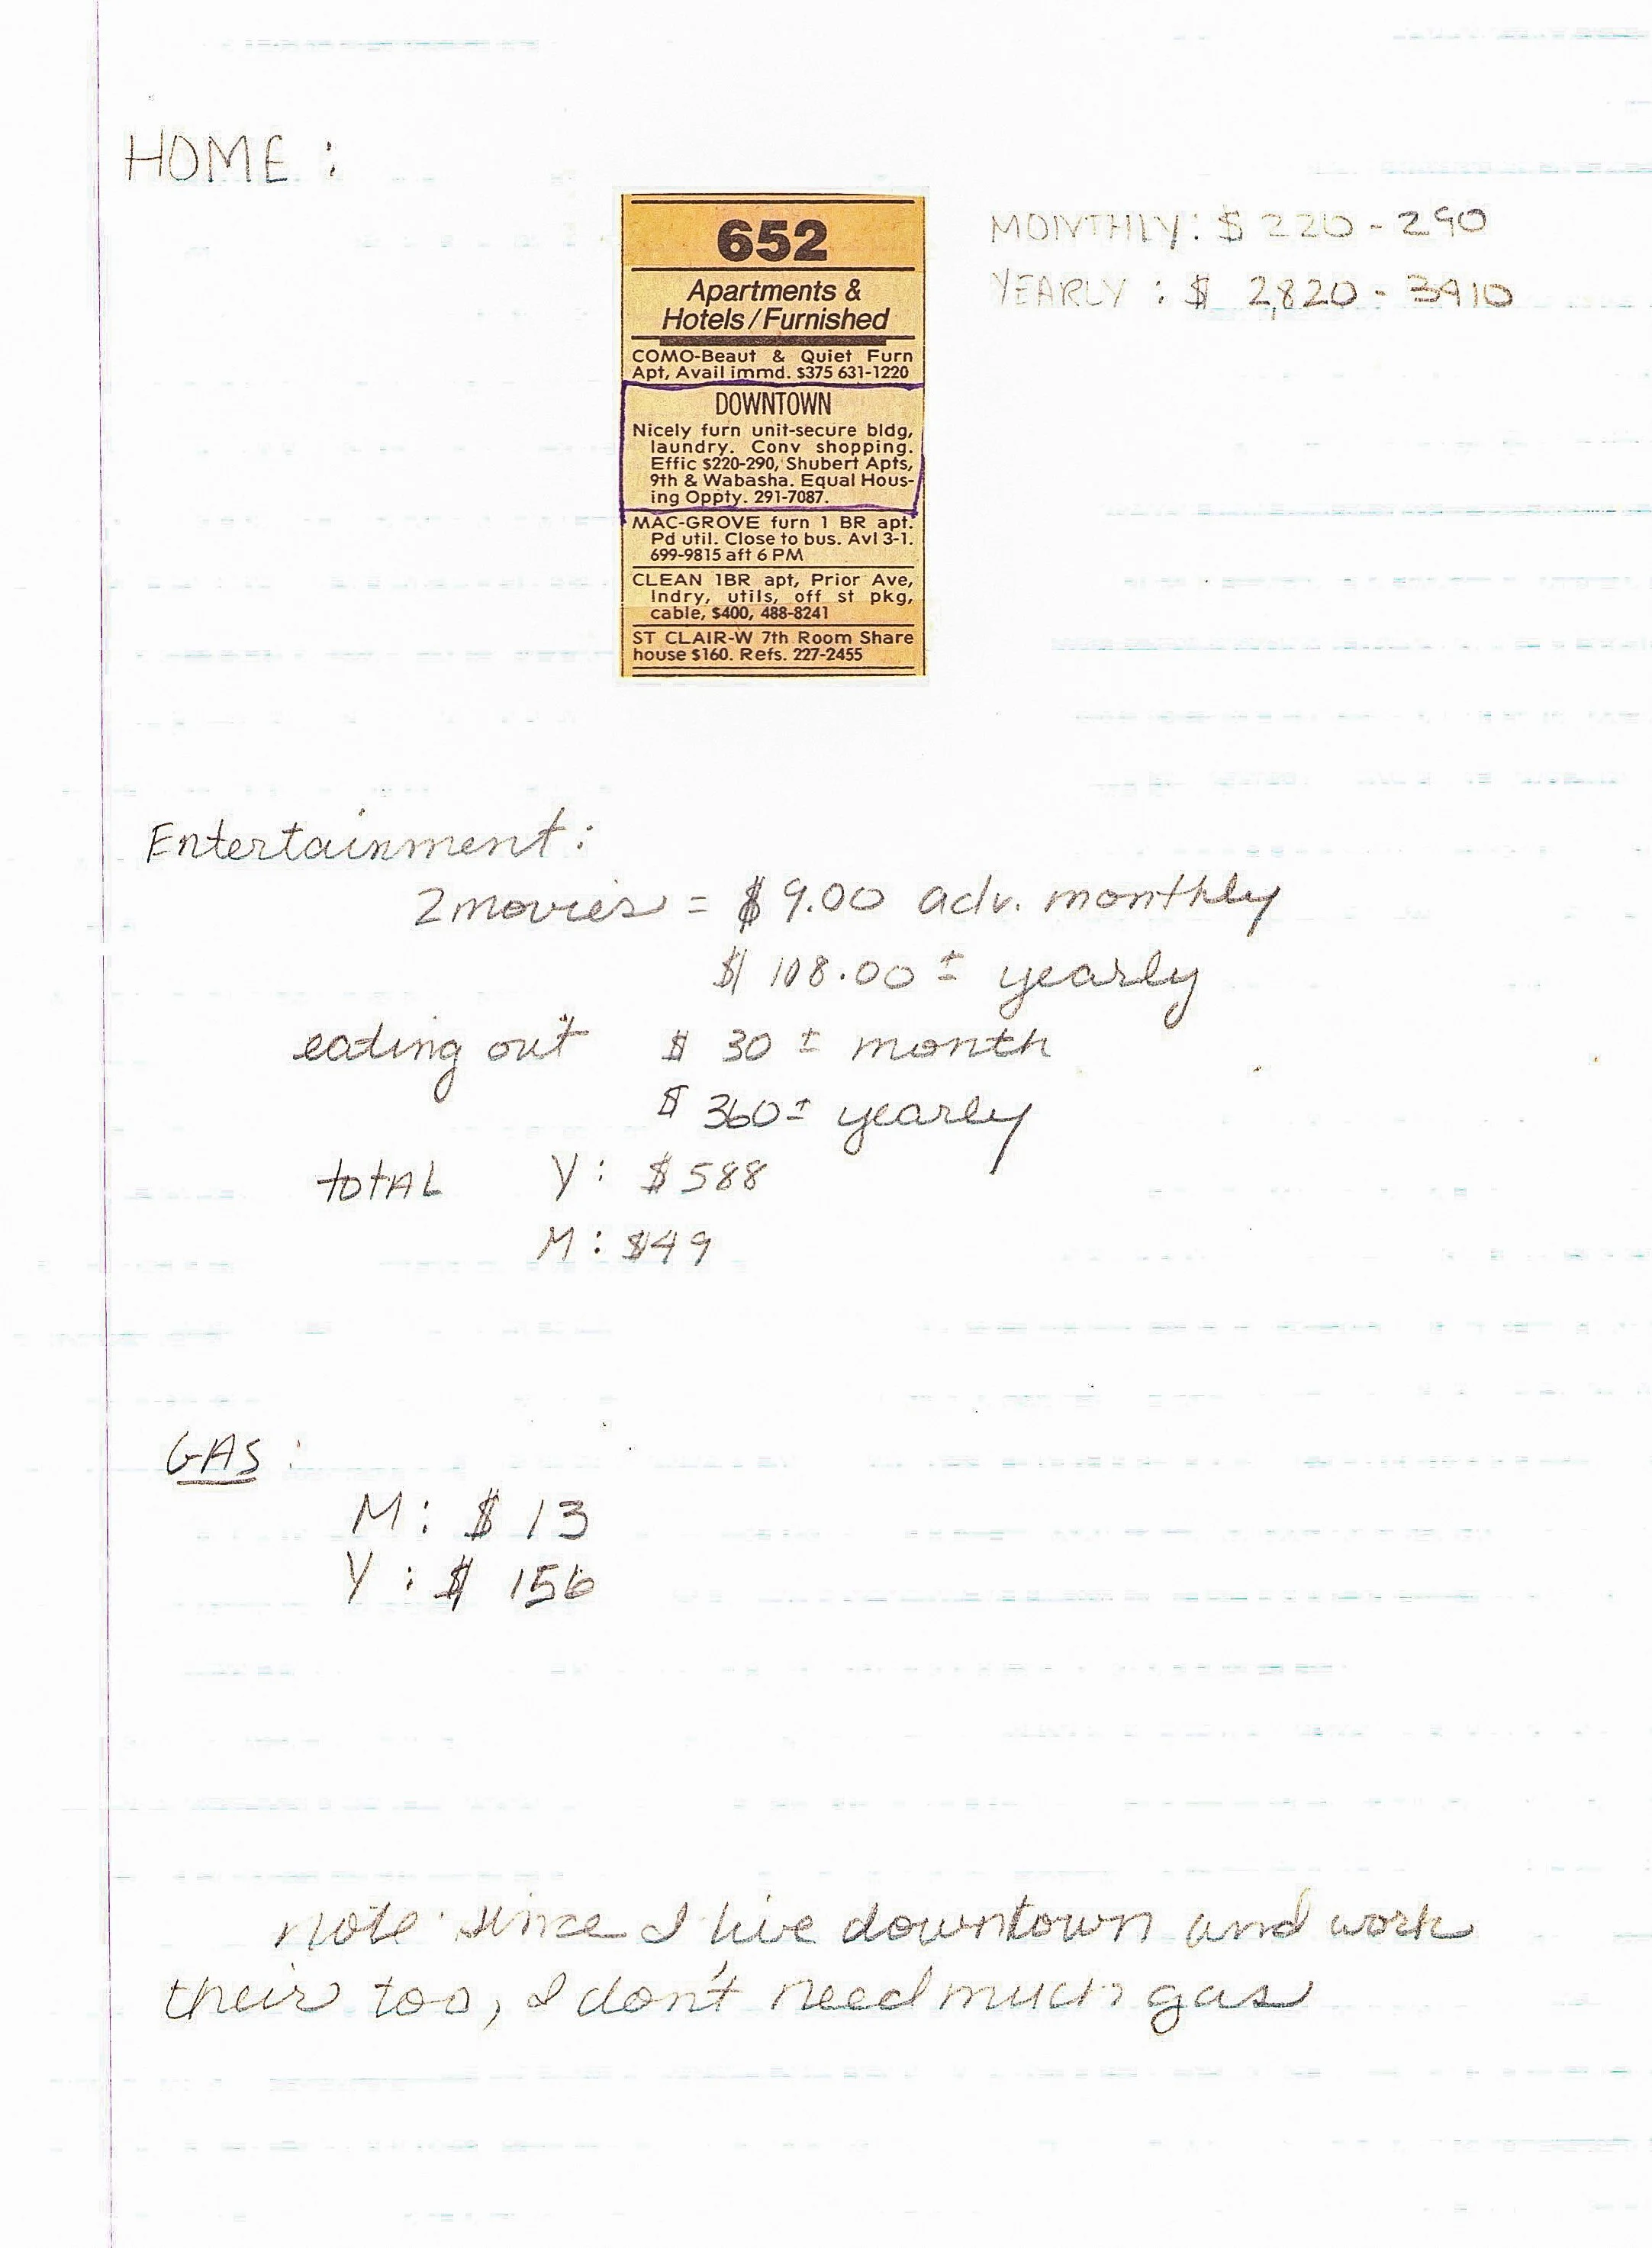 HOME :
652
Apartments &
Hotels/Furnished
COMO-Beaut & Quiet Furn
Apt, Avail immd. $375 631-1220
DOWNTOWN
Nicely furn unit-secure bldg,
laundry. Conv shopping.
Effic $220-290, Shubert Apts,
9th & Wabasha. Equal Hous-
ing Oppty. 291-7087.
MAC-GROVE furn 1 BR apt.
Pd util. Close to bus. Avl 3-1.
699-9815 aft 6 PM
CLEAN 1BR apt, Prior Ave,
lndry, utils, off st pkg,
cable, $400, 488-8241
ST CLAIR-W 7th Room Share
house $160. Refs. 227-2455
MONTHLY: $ 220 - 290
YEARLY : $ 2,820 - 3910
Entertainment:
2 movies = $ 9.00 adv. monthly
$ 108.00 ± yearly
eating out $ 30 ± month
$ 360 ± yearly
totAL Y: $ 588
M: $49
GAS :
M: $ 13
Y : $ 156
note: since I live downtown and work
their too, I don't need much gas